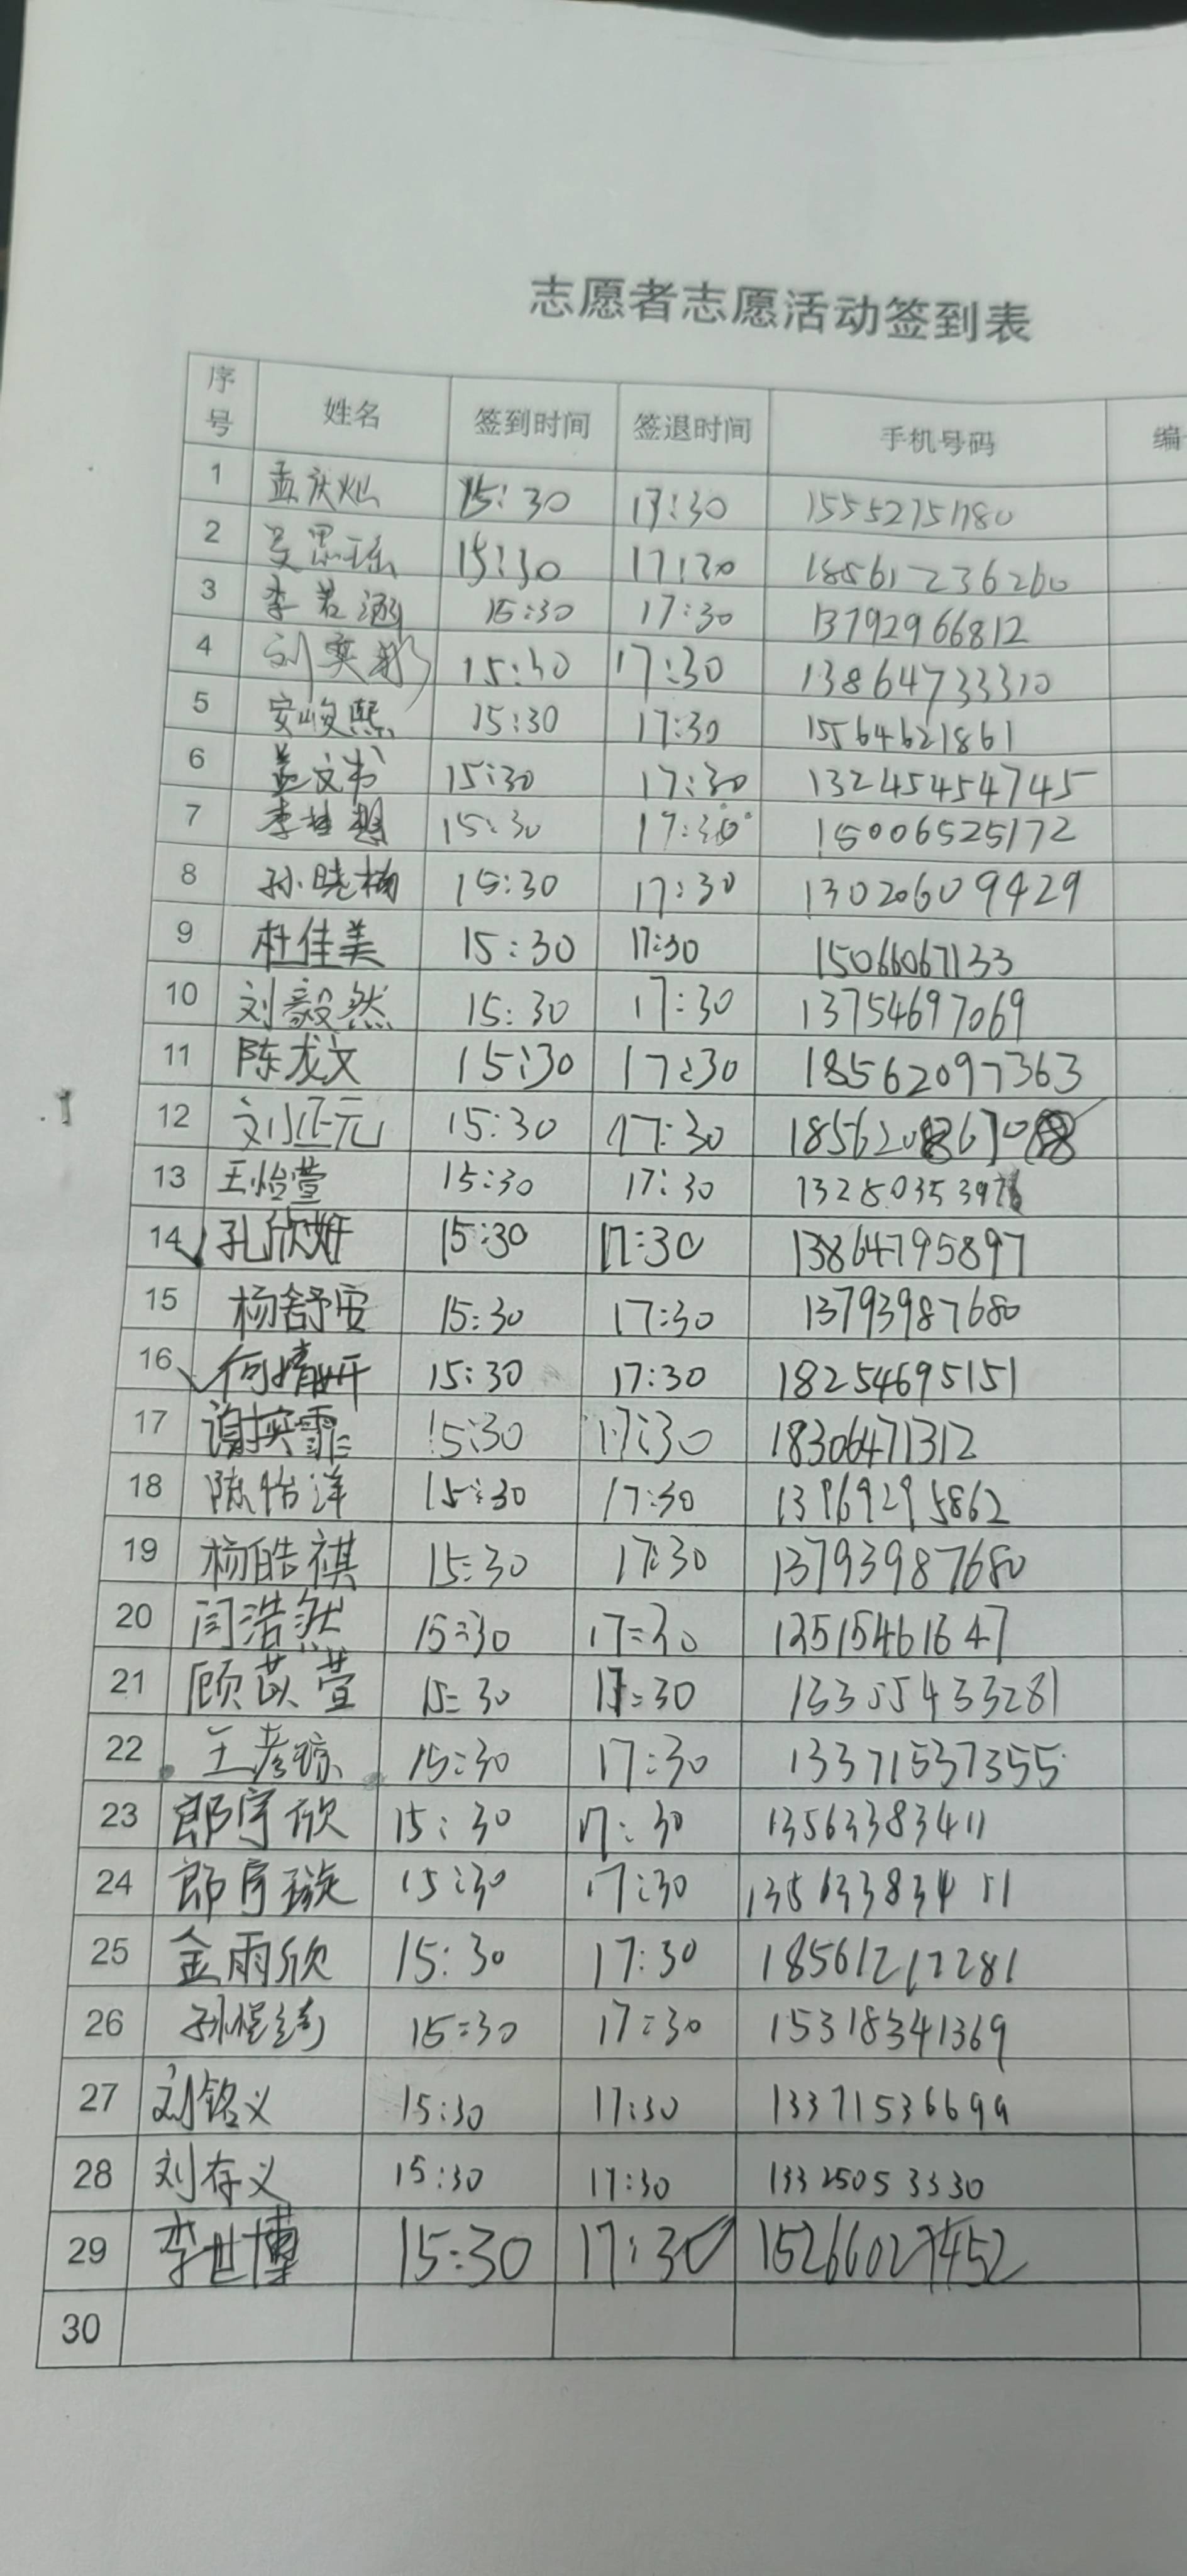 志愿者志愿活动签到表
序号 姓名 签到时间 签退时间 手机号码 编
1 孟庆灿 15:30 17:30
2 思瑶 15:30 17:30 18561236260
3 李若涵 15:30 17:30 13792966812
4 刘奕彤 15:30 17:30 13864733310
5 安峻熙 15:30 17:30 15564621861
6 孟文书 15:30 17:30 13245454745
7 李 15:30 17:30 15006525172
8 孙晓楠 15:30 17:30 13020609429
9 杜佳美 15:30 17:30 15066067133
10 刘毅然 15:30 17:30 13754697069
11 陈龙文 15:30 17:30 18562097363
12 刘正元 15:30 17:30
13 王怡萱 15:30 17:30
14 孔欣妍 15:30 17:30 13864795897
15 杨舒安 15:30 17:30 13793987680
16 何婧妍 15:30 17:30 18254695151
17 谢奕霏 15:30 17:30 18306471312
18 陈怡洋 15:30 17:30 13969295862
19 杨皓祺 15:30 17:30 13793987680
20 闫浩然 15:30 17:30 13515461647
21 顾苡萱 15:30 17:30 13355433281
22 王彦琼 15:30 17:30 13371537355
23 郎宇欣 15:30 17:30 13563383411
24 郎宇璇 15:30 17:30 13563383411
25 金雨欣 15:30 17:30 18561212281
26 孙 15:30 17:30 15318341369
27 刘铭义 15:30 17:30 13371536699
28 刘存义 15:30 17:30 13325053330
29 李世博 15:30 17:30 15266027452
30